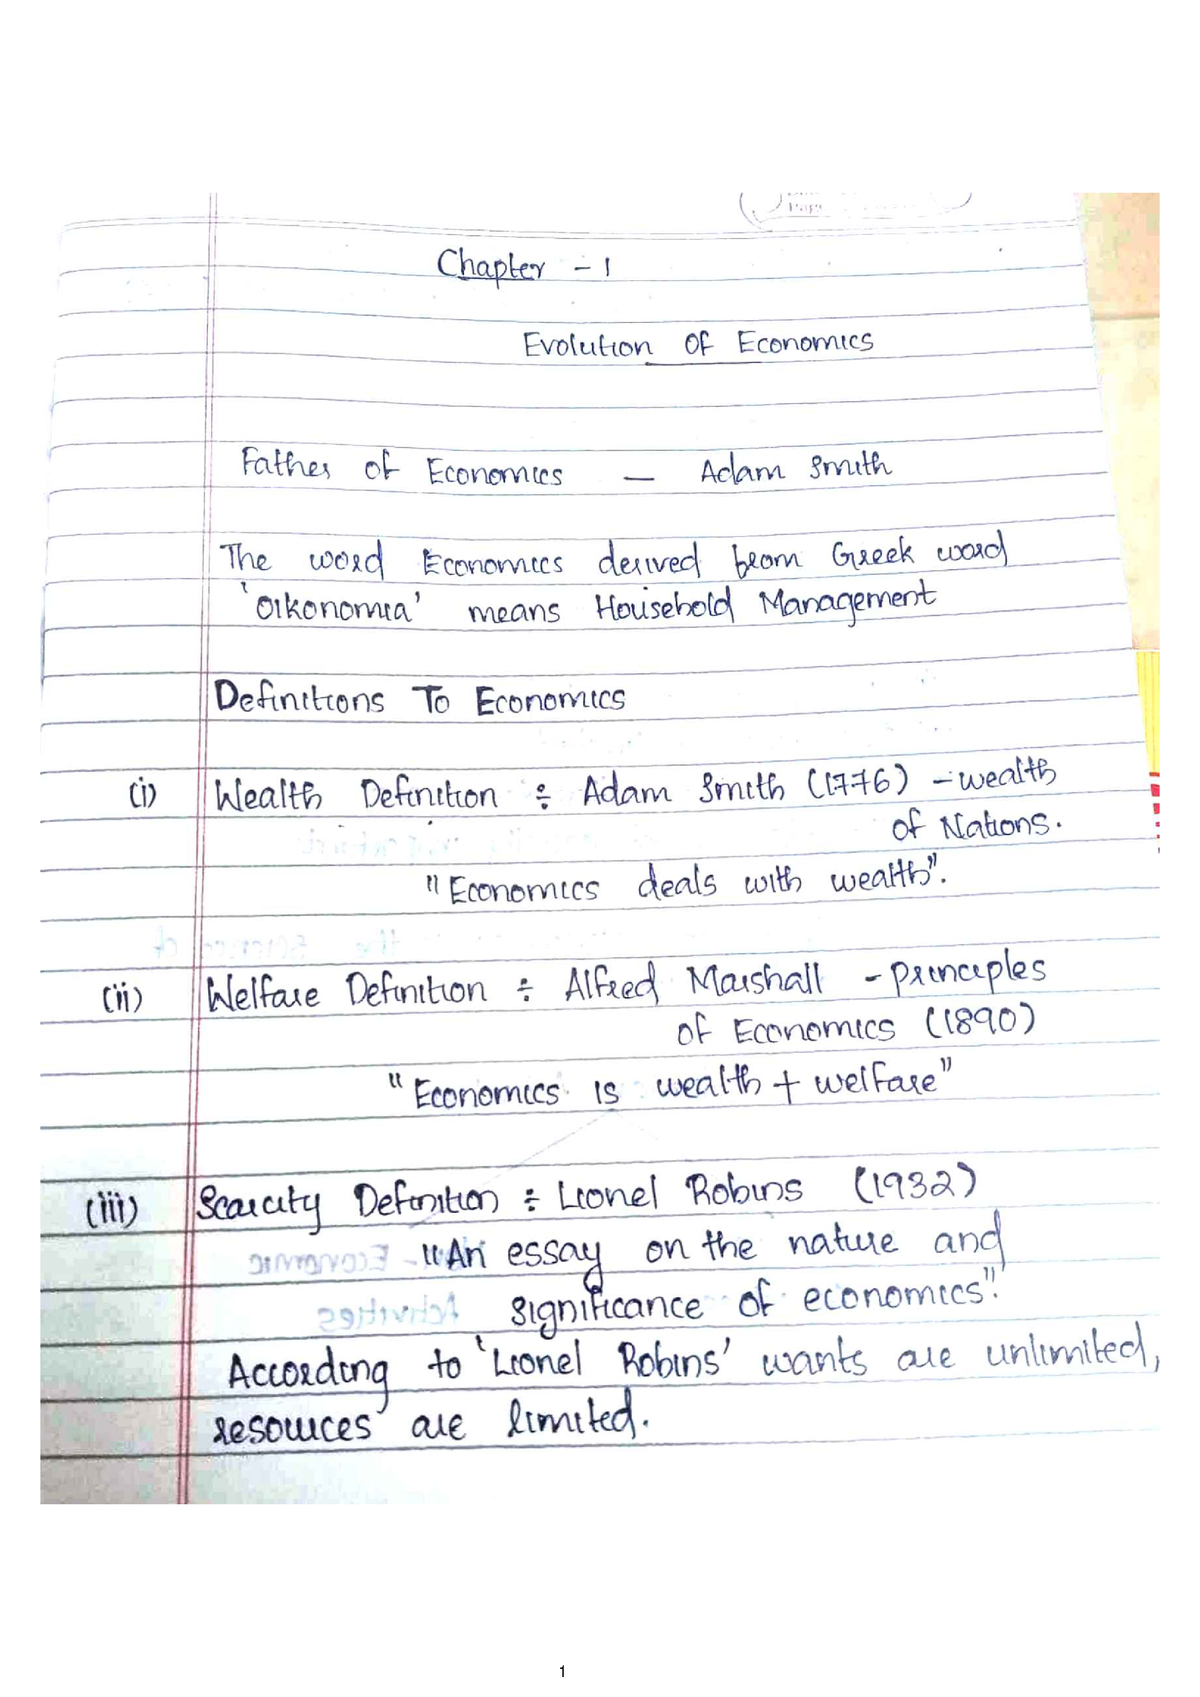 Page
Chapter - 1
Evolution Of Economics
Father of Economics — Adam Smith
The word Economics derived from Greek word
'Oikonomia' means Household Management
Definitions To Economics
(i) Wealth Definition ÷ Adam Smith (1776) - wealth
of Nations.
"Economics deals with wealth".
(ii) Welfare Definition ÷ Alfred Marshall - principles
of Economics (1890)
"Economics is wealth + welfare"
(iii) Scarcity Definition ÷ Lionel Robins (1932)
"An essay on the nature and
significance of economics".
According to 'Lionel Robins' wants are unlimited,
resources are limited.
1